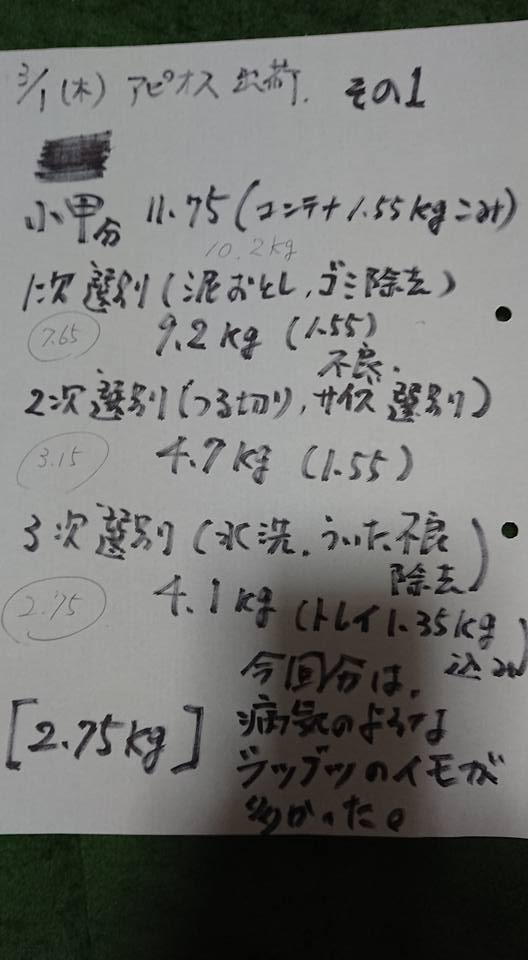 3/1(木) アピオス出荷. その1
小甲分 11.75(コンテナ1.55kgこみ)
10.2kg
1次選別(泥おとし,ゴミ除去)
7.65 9.2kg (1.55)
不良.
2次選別(つる切り,サイズ選別)
3.15 4.7kg (1.55)
3次選別(水洗.ういた不良
除去)
2.75 4.1kg (トレイ1.35kg
込み)
今回分は.
[2.75kg] 病気のような
ブツブツのイモが
多かった。